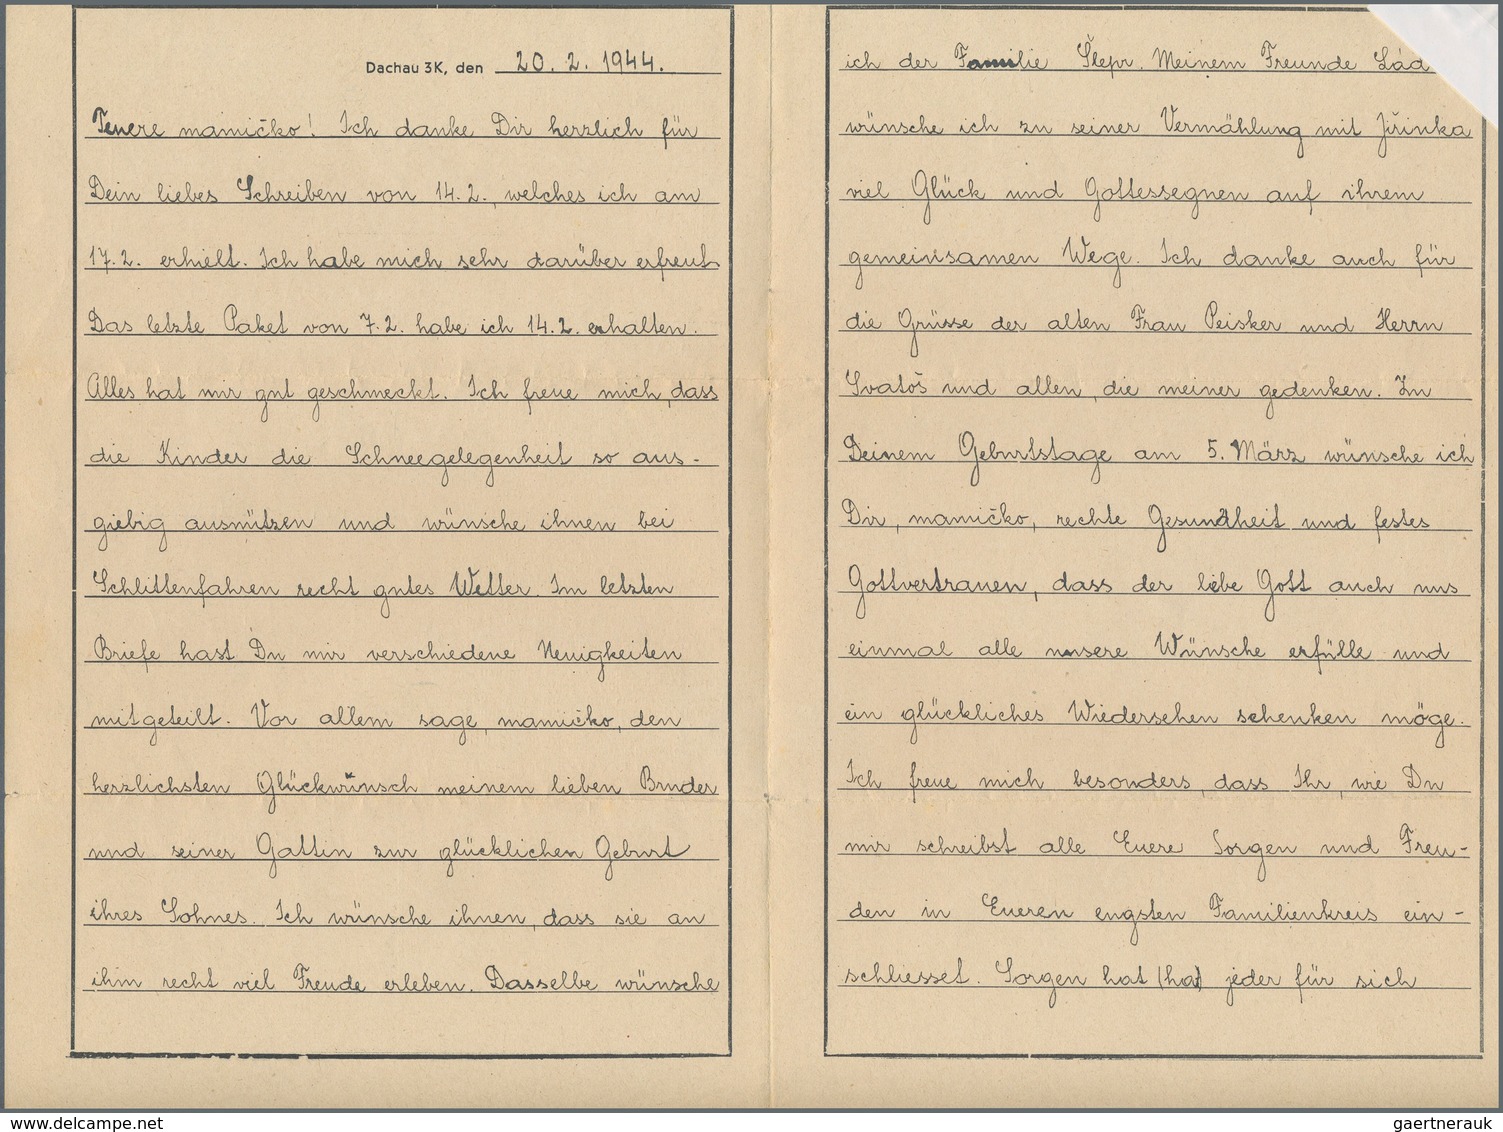 Dachau 3K, den 20. 2. 1944.
Teuere mamičko! Ich danke Dir herzlich für
Dein liebes Schreiben von 14. 2., welches ich am
17. 2. erhielt. Ich habe mich sehr darüber erfreut
Das letzte Paket von 7. 2. habe ich 14. 2. erhalten.
Alles hat mir gut geschmeckt. Ich freue mich, dass
die Kinder die Schneegelegenheit so aus-
giebig ausnützen und wünsche ihnen bei
Schlittenfahren recht gutes Wetter. Im letzten
Briefe hast Du mir verschiedene Neuigkeiten
mitgeteilt. Vor allem sage, mamičko, den
herzlichsten Glückwunsch meinem lieben Bruder
und seiner Gattin zur glücklichen Geburt
ihres Sohnes. Ich wünsche ihnen, dass sie an
ihm recht viel Freude erleben. Dasselbe wünsche
ich der Familie Šlepr. Meinem Freunde Lád
wünsche ich zu seiner Vermählung mit Jiřinka
viel Glück und Gottessegnen auf ihrem
gemeinsamen Wege. Ich danke auch für
die Grüsse der alten Frau Peisker und Herrn
Svatoš und allen, die meiner gedenken. Zu
Deinem Geburtstage am 5. März wünsche ich
Dir, mamičko, rechte Gesundheit und festes
Gottvertrauen, dass der liebe Gott auch uns
einmal alle unsere Wünsche erfülle und
ein glückliches Wiedersehen schenken möge.
Ich freue mich besonders, dass Ihr, wie Du
mir schreibst alle Euere Sorgen und Freu-
den in Eueren engsten Familienkreis ein-
schliesset. Sorgen hat (hat) jeder für sich
www.delcampe.net
gaertnerauk